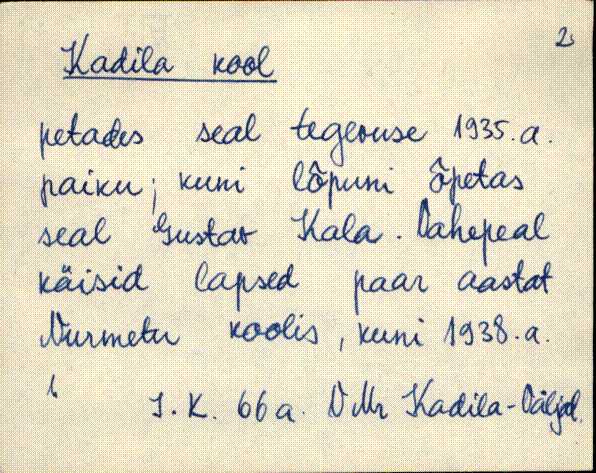 2
Kadila kool
petades seal tegevuse 1935.a.
paiku; kuni lõpuni õpetas
seal Gustav Kala. Vahepeal
käisid lapsed paar aastat
Nurmetu koolis, kuni 1938.a.
J.K. 66 a. VMr Kadila-Väljal.